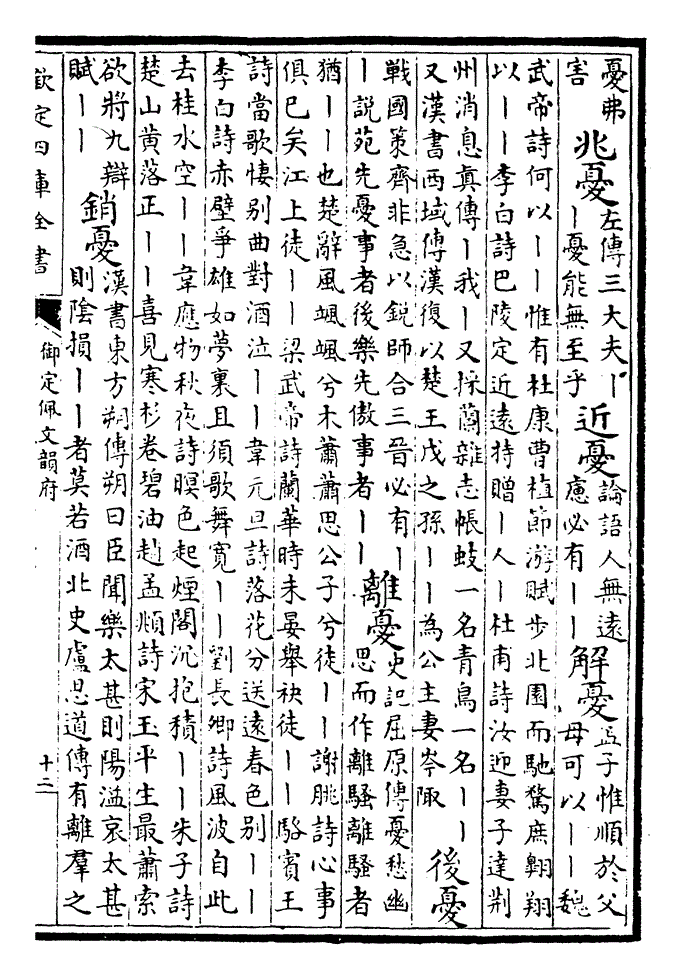 憂弗
害
兆憂
左傳三大夫丨
丨憂能無至乎
近憂
論語人無遠
慮必有丨丨
解憂
孟子惟順於父
母可以丨丨魏
武帝詩何以丨丨惟有杜康曹植節游賦步北園而馳騖庶翱翔
以丨丨李白詩巴陵定近遠持贈丨人丨杜甫詩汝迎妻子達荆
州消息真傳丨我丨又採蘭雜志帳蚊一名青鳥一名丨丨
又漢書西域傳漢復以楚王戊之孫丨丨為公主妻岑陬
後憂
戰國策齊非急以鋭師合三晉必有丨
丨説苑先憂事者後樂先傲事者丨丨
離憂
史記屈原傳憂愁幽
思而作離騷離騷者
猶丨丨也楚辭風颯颯兮木蕭蕭思公子兮徒丨丨謝朓詩心事
俱已矣江上徒丨丨梁武帝詩蘭華時未晏舉袂徒丨丨駱賓王
詩當歌悽别曲對酒泣丨丨韋元旦詩落花分送遠春色别丨丨
李白詩赤壁爭雄如夢裏且須歌舞寛丨丨劉長卿詩風波自此
去桂水空丨丨韋應物秋夜詩暝色起煙閣沉抱積丨丨朱子詩
楚山黄落正丨丨喜見寒杉卷碧油趙孟頫詩宋玉平生最蕭索
欲將九辯
賦丨丨
銷憂
漢書東方朔傳朔曰臣聞樂太甚則陽溢哀太甚
則陰損丨丨者莫若酒北史盧思道傳有離羣之
欽定四庫全書
御定佩文韻府